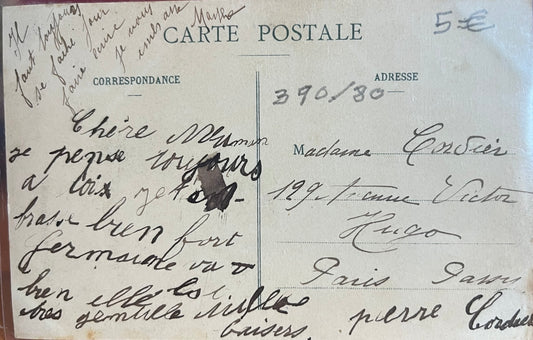 Il
faut toujours
se faire pour
faire rire
je vous
embrasse
CARTE POSTALE
5€
CORRESPONDANCE
ADRESSE
390/80
Chère Meman
je pense toujours
a toix je t'em-
brasse bien fort
Germaine va
bien elle est
tres gentille Mille
baisers.
Madame Cordier
129 Avenue Victor
Hugo
Paris
pierre Cordier